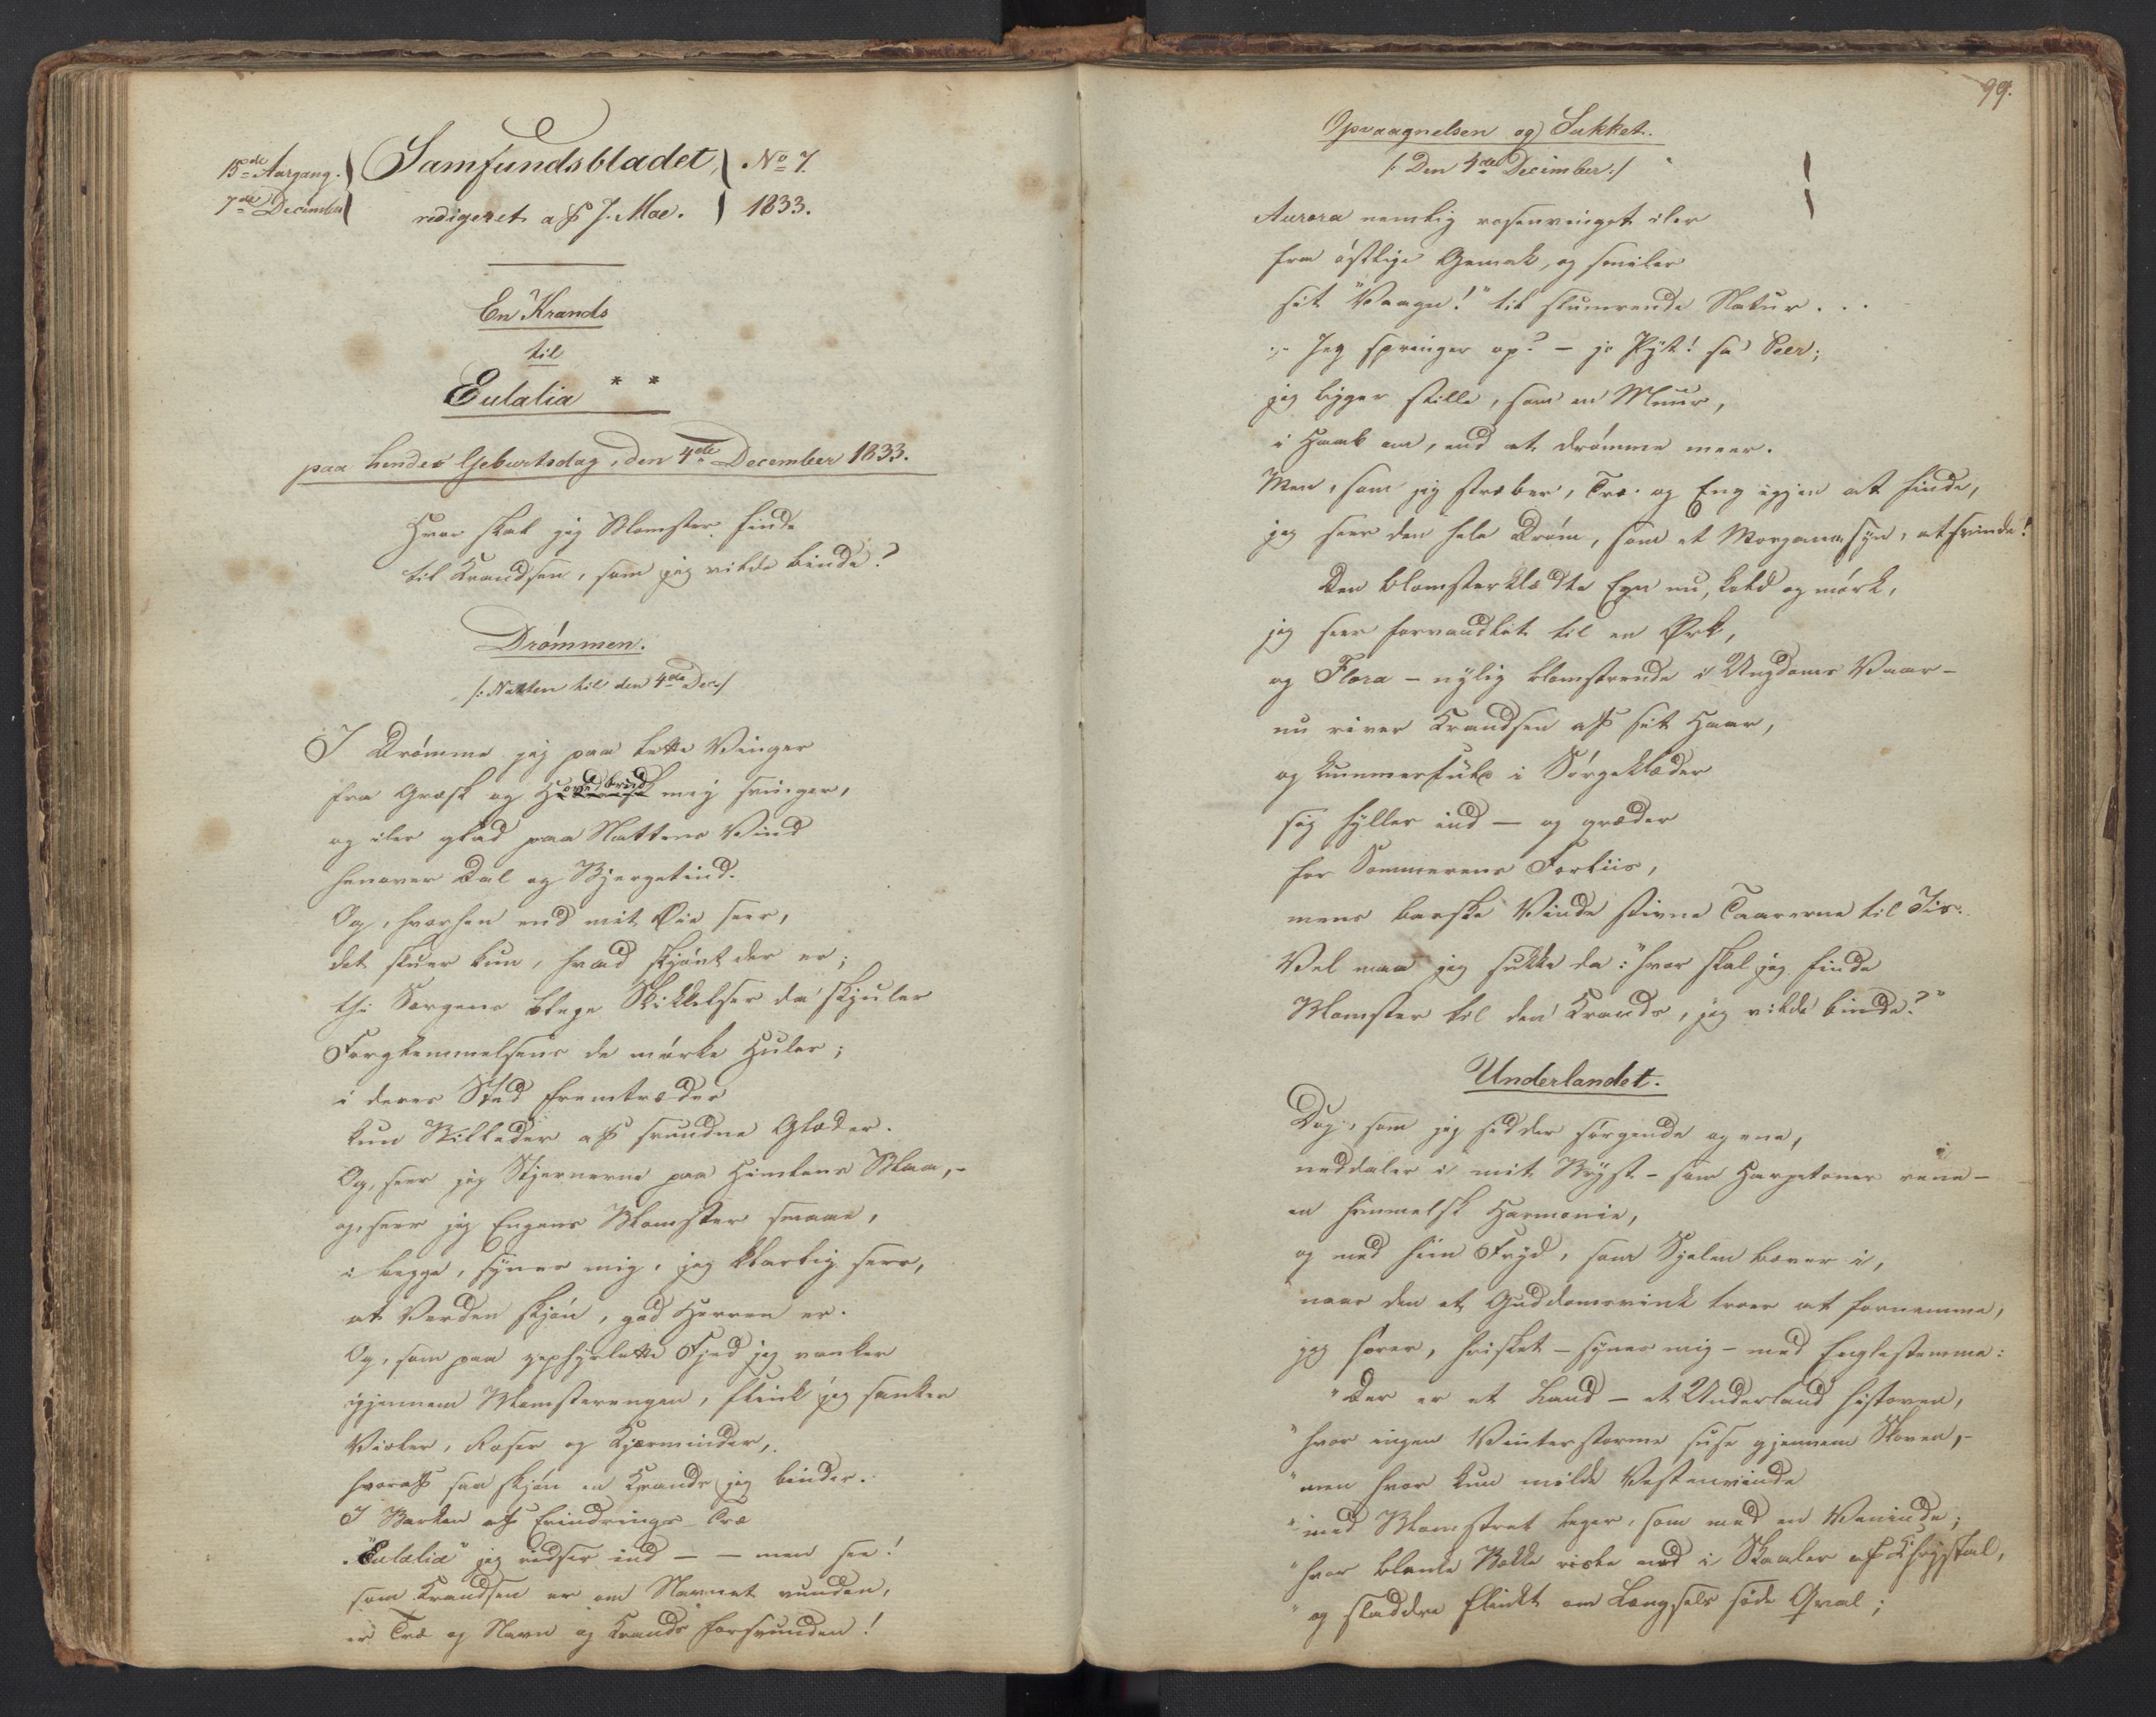 15de Aargang. Samfundsbladet, No 7.
7de December redigeret af J. Moe. 1833.
En Krands
til
Eulalia * *
paa hendes Geburtsdag, den 4de December 1833.
Hvor skal jeg Blomster finde
til Krandsen, som jeg vilde binde?
Drømmen.
/: Natten til den 4de Dec:/
I Drømme jeg paa lette Vinger
fra Græsk og Hovedbrud mig svinger,
og iler glad paa Nattens Vind
henover Dal og Bjergetind.
Og, hvorhen end mit Øie seer,
det skuer kun, hvad skjønt der er;
thi Sorgens blege Skikkelser da skjuler
Forglemmelsens de mørke Huler;
i deres Sted fremtræder
kun Billeder af svundne Glæder.
Og, seer jeg Stjernerne paa Himlens Blaa,-
og, seer jeg Engens Blomster smaae,
i begge, synes mig, jeg klarlig seer,
at Verden skjøn, god Herren er.
Og, som paa zephyrlette Fjed jeg vanker
igjennem Blomsterengen, flink jeg sanker
Violer, Roser og Kjærminder,
hvoraf saa skjøn en Krands jeg binder.
I Barken af Erindrings-Træ
"Eulalia" jeg ridser ind — — men see!
som Krandsen er om Navnet vunden,
er Træ og Navn og Krands forsvunden!
99.
Opvaagnelsen og Sukket.
/: Den 4de December:/
Aurora nemlig rosenvinget iler
fra østlige Gemak, og smiler
sit "Vaagn!" til slumrende Natur...
Jeg springer op? — jo Pyt! sa' Peer;
jeg ligger stille, som en Muur,
i Haab om, end at drømme meer.
Men, som jeg stræber, Træ og Eng igjen at finde,
jeg seer den hele Drøm, som et Morganasyn, at svinde!
Den blomsterklædte Egn nu, kold og mørk,
jeg seer forvandlet til en Ørk,
og Flora — nylig blomstrende i Ungdoms Vaar —
nu river Krandsen af sit Haar,
og kummerfuld i Sørgeklæder
sig hyller ind — og græder
for Sommerens Forliis,
mens barske Vinde stivne Taarerne til Iis.
Vel maa jeg sukke da: "hvor skal jeg finde
Blomster til den Krands, jeg vilde binde?"
Underlandet.
Dog, som jeg sidder sørgende og ene,
neddaler i mit Bryst — som Harpetoner rene —
en himmelsk Harmonie,
og med hiin Fryd, som Sjælen bæver i,
naar den et Guddomsvink troer at fornemme,
jeg hører, hvisket — synes mig — med Englestemme:
"Der er et Land — et Underland histoven,
"hvor ingen Vinterstorme suse gjennem Skoven,-
"men hvor kun milde Vestenvinde
"med Blomstret leger, som med en Veninde;
"hvor blanke Bække risle ned i Skaaler af Chrystal,
"og sladdre flinkt om Længsels søde Qval;